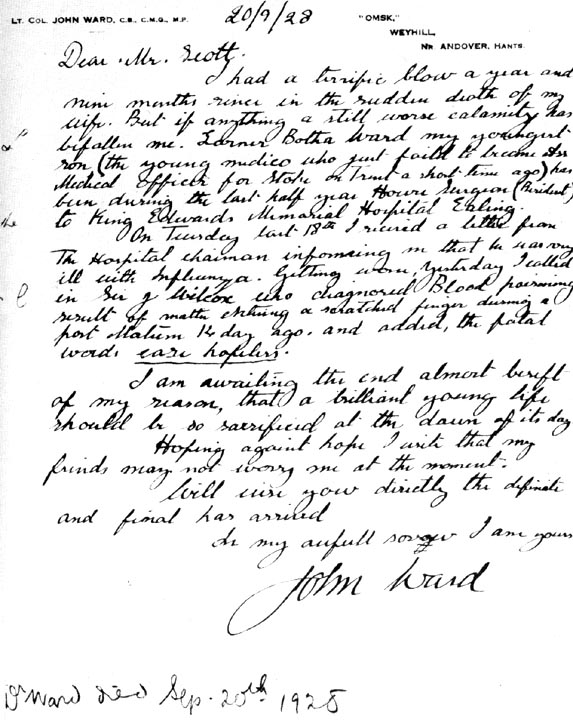 LT. COL. JOHN WARD, C.B., C.M.G., M.P. 20/9/28 "OMSK,"
WEYHILL,
NR ANDOVER, HANTS.
Dear Mr. Scott.
I had a terrific blow a year and
nine months since in the sudden death of my
wife. But if anything a still worse calamity has
bifallen me. Lorner Botha Ward my youngest
son (the young medico who just faild to become Ass
Medical Officer for Stoke on Trent a short time ago) has
been during the last half year House Surgeon (Resident)
to King Edwards Memorial Hospital Ealing.
On Tuesday last 18th I recieved a letter from
The Hospital chairman informing m that he was very
ill with Influenza. Getting worse, yesterday I called
in Sir J Wilcox who diagnosed Blood poisoning
result of matter entering a scratched finger during a
post Mortum 14 day ago. and added, the fatal
words case hopeless.
I am awaiting the end almost bereft
of my reason, that a brilliant young life
should be so sacrificed at the dawn of its day
Hoping against hope I write that my
friends may not worry me at the moment.
Will wire you directly the definate
and final has arrived
In my aufull sorrow I am yours
John Ward
Dr Ward died Sep. 20th 1928